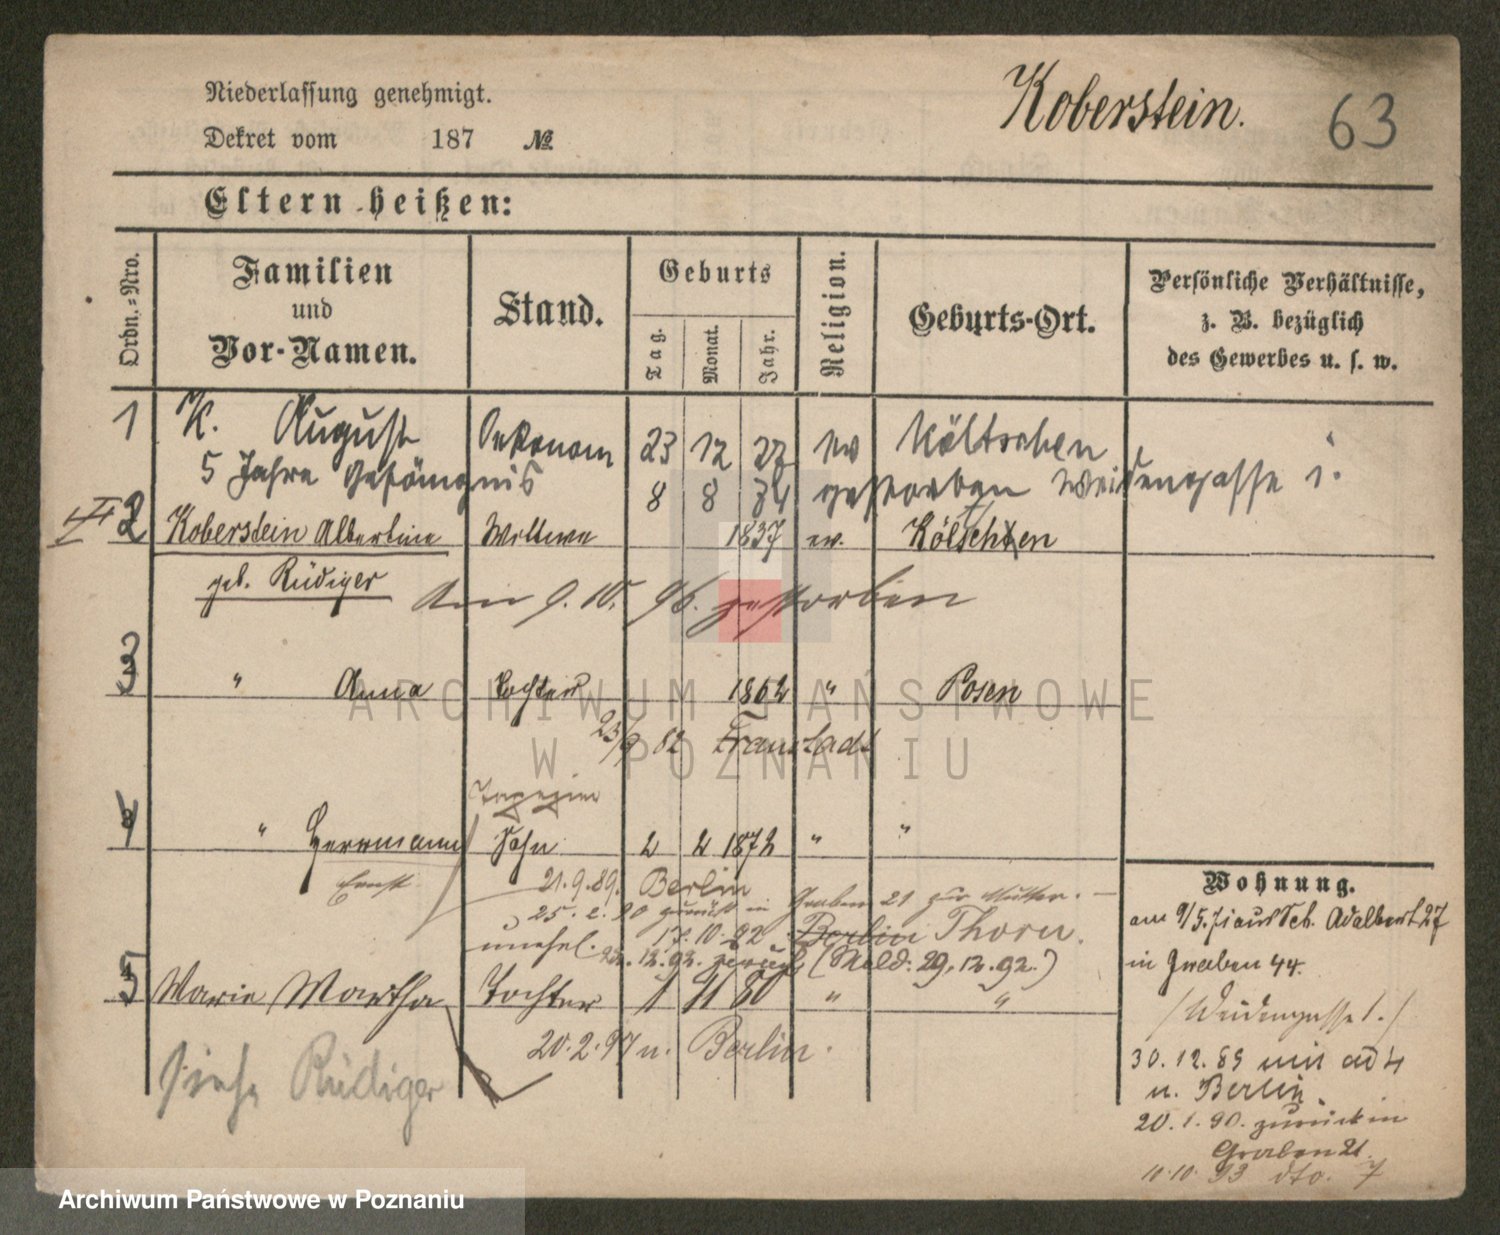 Niederlassung genehmigt.
Koberstein. 63
Dekret vom 187 №
Eltern heißen:
Ordn.=Nro.
Familien
und
Vor-Namen.
Stand.
Geburts
Tag.
Monat.
Jahr.
Religion.
Geburts-Ort.
Persönliche Verhältnisse,
z. B. bezüglich
des Gewerbes u. s. w.
1 K. August Oekonom 23 12 27 ev Költschen
5 Jahre Gefängnis 8 8 84 gestorben Weidengasse 1.
II 2 Koberstein Albertine Wittwe 1837 ev. Költschen
geb. Rüdiger Am 9. 10. 96. gestorben
3 " Anna Tochter 1862 " Posen
23/9 82 Fraustadt
4 " Herrmann Sohn 2 2 1872 " "
Ernst
21.9.89. Berlin
25. 2. 90 zurück in Graben 21 zur Mutter.
17.10.92 Berlin Thorn.
unehel. 22.12.92. zurück (Meld. 29.12.92.)
5 Marie Martha Tochter 1 11 80 " "
20.2.97 n. Berlin.
siehe Rüdiger
Wohnung.
am 9/5.71 aus Sct. Adalbert 27
in Graben 44.
/Weidengasse 1./
30.12.89 mit ad 4
n. Berlin.
20.1.90. zurück in
Graben 21.
11.10.93 dto. 7
ARCHIWUM PAŃSTWOWE
W POZNANIU
Archiwum Państwowe w Poznaniu